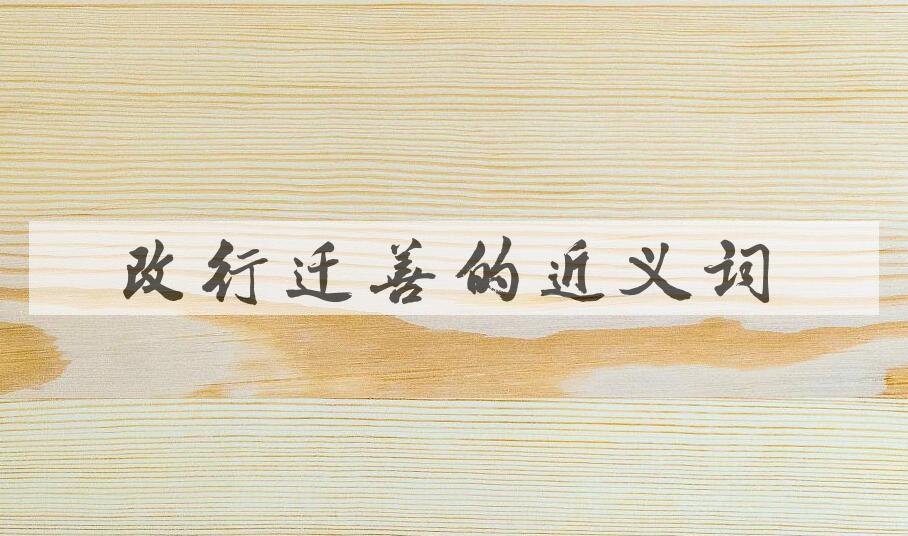 改行迁善的近义词